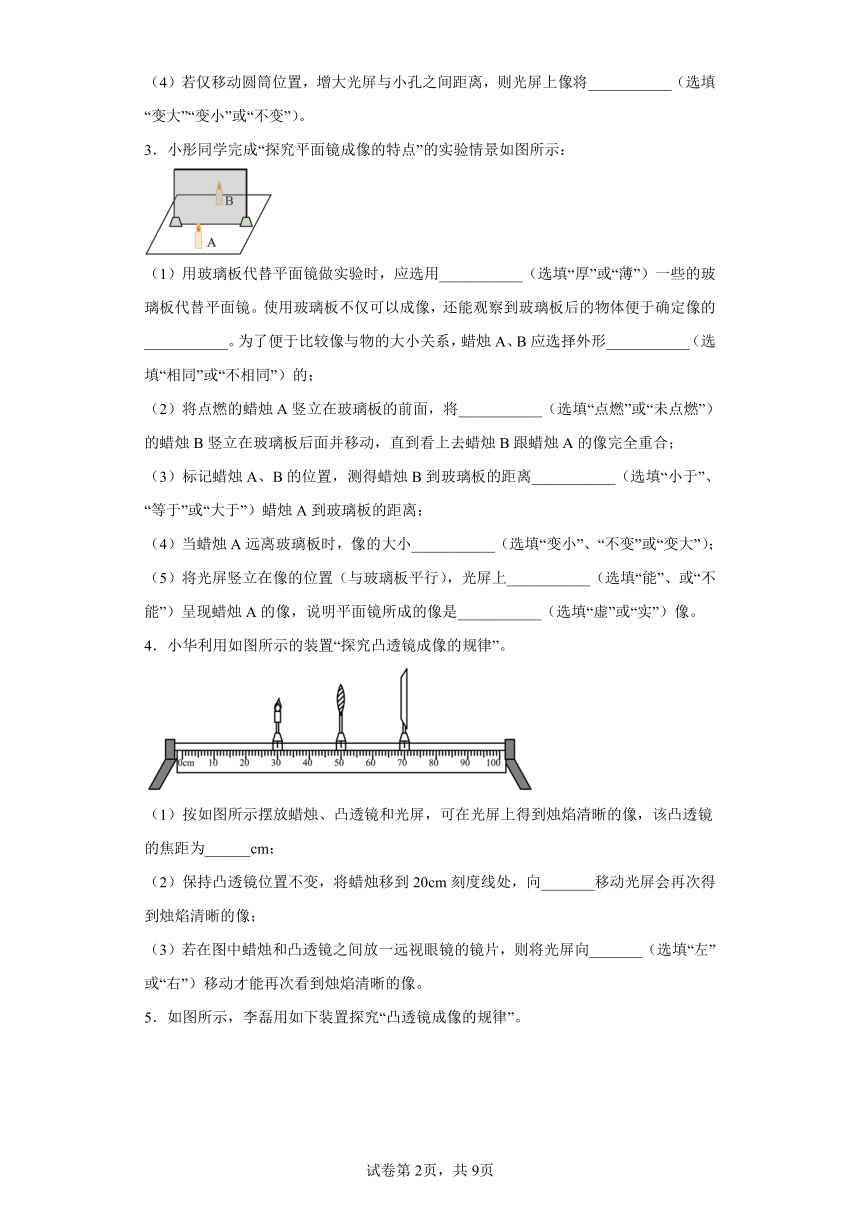 （4）若仅移动圆筒位置，增大光屏与小孔之间距离，则光屏上像将___________（选填
“变大”“变小”或“不变”）。
3．小彤同学完成“探究平面镜成像的特点”的实验情景如图所示：
B
A
（1）用玻璃板代替平面镜做实验时，应选用___________（选填“厚”或“薄”）一些的玻
璃板代替平面镜。使用玻璃板不仅可以成像，还能观察到玻璃板后的物体便于确定像的
___________。为了便于比较像与物的大小关系，蜡烛 A、B 应选择外形___________（选
填“相同”或“不相同”）的；
（2）将点燃的蜡烛 A 竖立在玻璃板的前面，将___________（选填“点燃”或“未点燃”）
的蜡烛 B 竖立在玻璃板后面并移动，直到看上去蜡烛 B 跟蜡烛 A 的像完全重合；
（3）标记蜡烛 A、B 的位置，测得蜡烛 B 到玻璃板的距离___________（选填“小于”、
“等于”或“大于”）蜡烛 A 到玻璃板的距离；
（4）当蜡烛 A 远离玻璃板时，像的大小___________（选填“变小”、“不变”或“变大”）；
（5）将光屏竖立在像的位置（与玻璃板平行），光屏上___________（选填“能”、或“不
能”）呈现蜡烛 A 的像，说明平面镜所成的像是___________（选填“虚”或“实”）像。
4．小华利用如图所示的装置“探究凸透镜成像的规律”。
0cm 10 20 30 40 50 60 70 80 90 100
（1）按如图所示摆放蜡烛、凸透镜和光屏，可在光屏上得到烛焰清晰的像，该凸透镜
的焦距为______cm；
（2）保持凸透镜位置不变，将蜡烛移到 20cm 刻度线处，向_______移动光屏会再次得
到烛焰清晰的像；
（3）若在图中蜡烛和凸透镜之间放一远视眼镜的镜片，则将光屏向_______（选填“左”
或“右”）移动才能再次看到烛焰清晰的像。
5．如图所示，李磊用如下装置探究“凸透镜成像的规律”。
试卷第 2页，共 9页